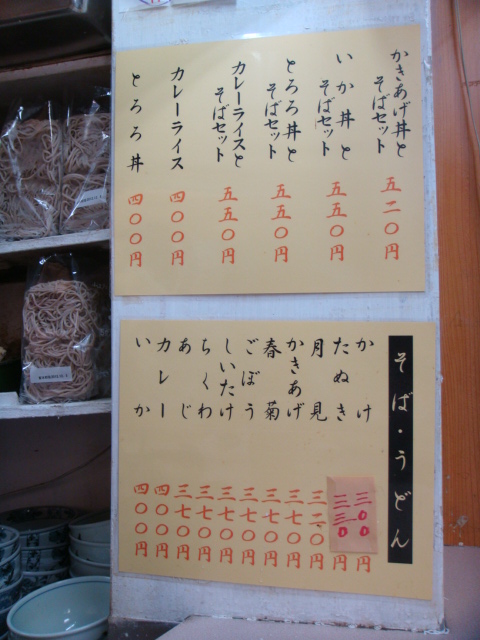 かきあげ丼と
そばセット 五二〇円
いか丼と
そばセット 五五〇円
とろろ丼と
そばセット 五五〇円
カレーライスと
そばセット 五五〇円
カレーライス 四〇〇円
とろろ丼 四〇〇円
そば・うどん
かけ 三〇〇円
たぬき 三三〇円
月見 三二〇円
かきあげ 三七〇円
春菊 三七〇円
ごぼう 三七〇円
しいたけ 三七〇円
ちくわ 三七〇円
あじ 三七〇円
カレー 四〇〇円
いか 四〇〇円